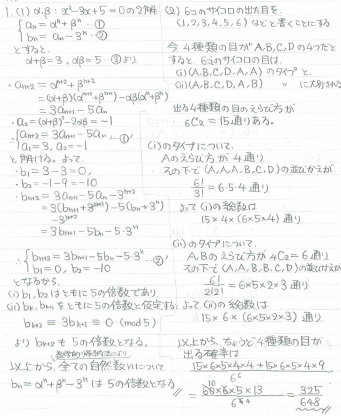 1. (1) α, β : x²-3x+5=0 の2解
{ aₙ = αⁿ+βⁿ …①
bₙ = aₙ-3ⁿ …②
とすると
α+β=3, αβ=5 …③ より
・aₙ₊₂ = αⁿ⁺²+βⁿ⁺²
= (α+β)(αⁿ⁺¹+βⁿ⁺¹)-αβ(αⁿ+βⁿ)
= 3aₙ₊₁-5aₙ
・a₂ = (α+β)²-2αβ = -1
{ aₙ₊₂ = 3aₙ₊₁-5aₙ …①'
a₁=3, a₂=-1
と解ける。よって
・b₁ = 3-3 = 0,
・b₂ = -1-9 = -10
・bₙ₊₂ = 3aₙ₊₁-5aₙ-3ⁿ⁺²
= 3(bₙ₊₁+3ⁿ⁺¹)-5(bₙ+3ⁿ)
-3ⁿ⁺²
= 3bₙ₊₁-5bₙ-5·3ⁿ
∴ { bₙ₊₂ = 3bₙ₊₁-5bₙ-5·3ⁿ …②'
b₁=0, b₂=-10
となるから、
(i) b₁, b₂ はともに5の倍数であり
(ii) bₙ, bₙ₊₁ をともに5の倍数と仮定すると
bₙ₊₂ ≡ 3bₙ₊₁ ≡ 0 (mod 5)
より bₙ₊₂ も 5の倍数となる。
数学的帰納法により
以上から、全ての自然数nについて
bₙ = αⁿ+βⁿ-3ⁿ は 5の倍数となる
(2) 6コのサイコロの出た目を、
(1, 2, 3, 4, 5, 6) などと書くことにする
今 4種類の目が A, B, C, D の4つだと
すると、6コのサイコロの目は、
(i) (A, B, C, D, A, A) のタイプ と
(ii) (A, B, C, D, A, B) 〃 に大別される
出る4種類の目のえらび方が
₆C₂ = 15通りある。
(i) のタイプについて、
Aのえらび方が 4通り
その下で (A, A, A, B, C, D) の並びかえが
6!/3! = 6·5·4 通り
よって (i) の総数は
15×4×(6×5×4) 通り
(ii) のタイプについて、
A, Bのえらび方が ₄C₂ = 6通り
その下で (A, A, B, B, C, D) の並びかえが
6!/2!2! = 6×5×2×3 通り
よって (ii) の総数は
15×6×(6×5×2×3) 通り
以上から、ちょうど4種類の目が
出る確率は
= 325/648